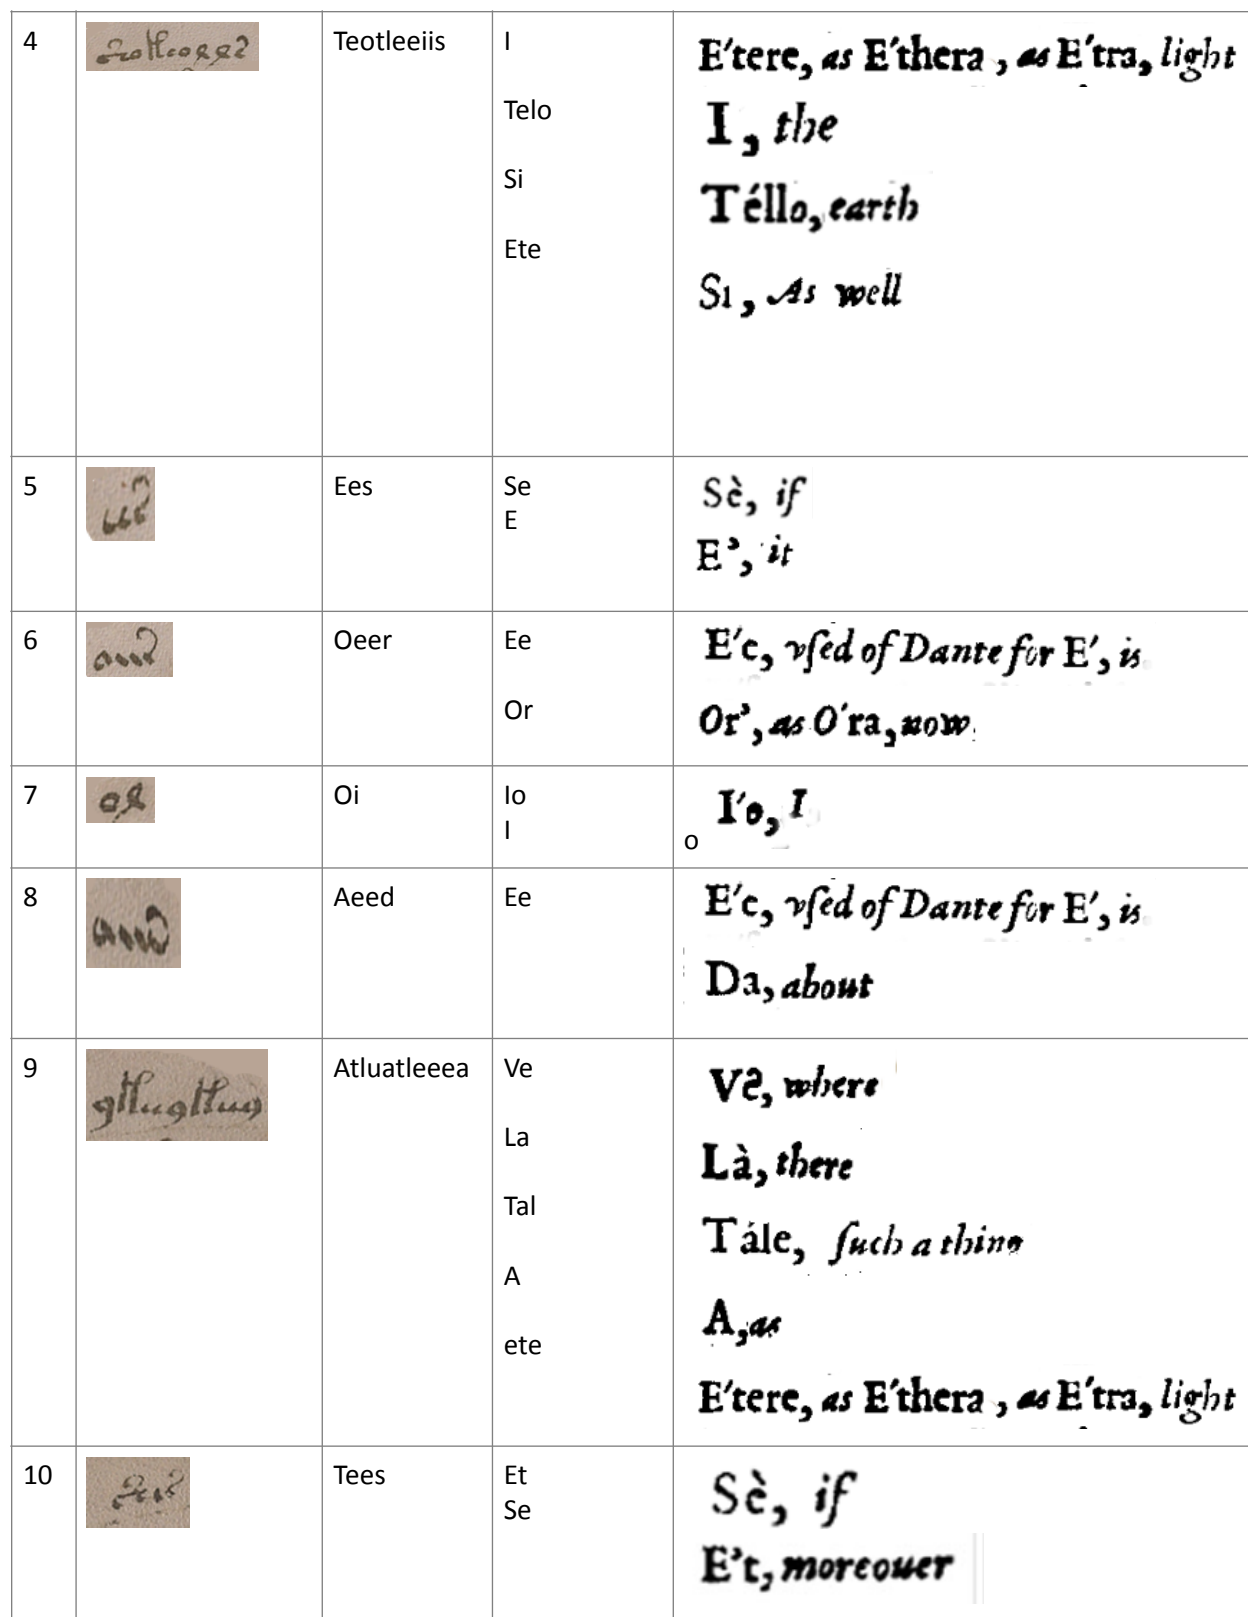 4 Teotleeiis I E'tere, as E'thera, as E'tra, light
Telo I, the
Si Téllo, earth
Ete Sı, As well
5 Ees Se Sè, if
E E', it
6 Oeer Ee E'e, vſed of Dante for E', is
Or Or', as O'ra, now
7 Oi Io I'o, I
I o
8 Aeed Ee E'e, vſed of Dante for E', is
Da, about
9 Atluatleeea Ve Vè, where
La Là, there
Tal Tále, ſuch a thing
A A, as
ete E'tere, as E'thera, as E'tra, light
10 Tees Et Sè, if
Se E't, moreouer